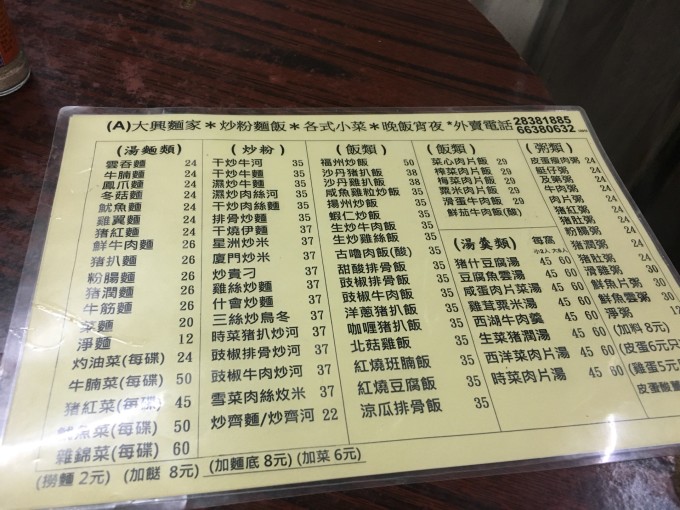 (A)大興麵家＊炒粉麵飯＊各式小菜＊晚飯宵夜*外賣電話 28381885
66380632
(湯麵類)
雲吞麵 24
牛腩麵 24
鳳爪麵 24
冬菇麵 24
魷魚麵 24
雞翼麵 24
豬紅麵 24
鮮牛肉麵 26
豬扒麵 26
粉腸麵 26
豬潤麵 26
牛筋麵 26
菜麵 20
淨麵 12
灼油菜(每碟) 24
牛腩菜(每碟) 50
豬紅菜(每碟) 45
魷魚菜(每碟) 50
雜錦菜(每碟) 60
(炒粉)
干炒牛河 35
干炒牛麵 35
濕炒牛河 35
濕炒肉絲河 35
干炒肉絲麵 35
排骨炒麵 35
干燒伊麵 35
星洲炒米 37
廈門炒米 37
炒貴刁 37
雞絲炒麵 37
什會炒麵 37
三絲炒烏冬 37
時菜豬扒炒河 37
豉椒排骨炒河 37
豉椒牛肉炒河 37
雪菜肉絲炆米 37
炒齊麵/炒齊河 22
(飯類)
福州炒飯 50
沙丹豬扒飯 38
沙丹雞扒飯 38
咸魚雞粒炒飯 38
揚州炒飯 35
蝦仁炒飯 35
生炒牛肉飯 35
生炒雞絲飯 35
古嚕肉飯(酸) 35
甜酸排骨飯 35
豉椒排骨飯 35
豉椒牛肉飯 35
洋蔥豬扒飯 35
咖喱豬扒飯 35
北菇雞飯 35
紅燒班腩飯 35
紅燒豆腐飯 35
涼瓜排骨飯 35
(飯類)
菜心肉片飯 29
榨菜肉片飯 29
梅菜肉片飯 29
粟米肉片飯 29
滑蛋牛肉飯 29
鮮茄牛肉飯(酸)
(湯羹類) 每窩
小2人 大4人
豬什豆腐湯 45 60
豆腐魚雲湯 45 60
咸蛋肉片菜湯 45 60
雞茸粟米湯 45 60
西湖牛肉羹 45 60
生菜豬潤湯 45 60
西洋菜肉片湯 45 60
時菜肉片湯 45 60
(粥類)
皮蛋瘦肉粥 24
艇仔粥 24
及第粥 24
牛肉粥 24
肉片粥 24
豬紅粥 24
豬肚粥 24
粉腸粥 24
豬潤粥 24
滑雞粥 30
鮮魚片粥 30
鮮魚雲粥 30
淨粥 12
(加料 8元)
(皮蛋6元只
(雞蛋5元
皮蛋酸薑
(撈麵 2元) (加餸 8元) (加麵底 8元) (加菜 6元)